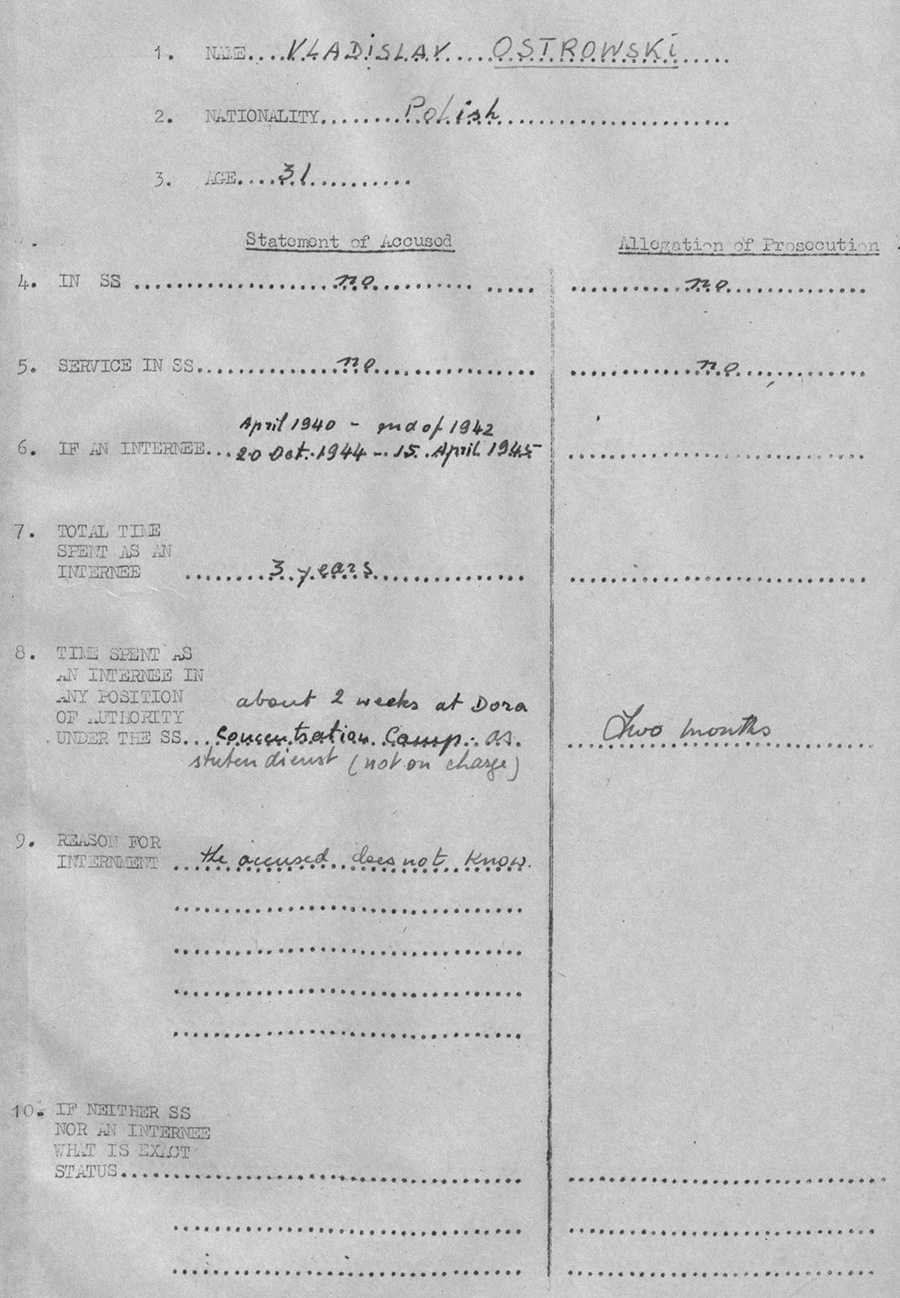 1. NAME....VLADISLAV....OSTROWSKI.....
2. NATIONALITY.......Polish..................
3. AGE....31..........
Statement of Accused Allegation of Prosecution
4. IN SS ..................no.............. ..... .........no............
5. SERVICE IN SS..............no................ ..........no...........
April 1940 - end of 1942
6. IF AN INTERNEE...20 Oct. 1944 - 15. April 1945 ..........................
7. TOTAL TIME
SPENT AS AN
INTERNEE ........3 years............... ..........................
8. TIME SPENT AS
AN INTERNEE IN
ANY POSITION about 2 weeks at Dora
OF AUTHORITY Two months
UNDER THE SS...Concentration Camp. as.
stuben dienst (not on charge)
9. REASON FOR
INTERNMENT ...the accused does not know.
10. IF NEITHER SS
NOR AN INTERNEE
WHAT IS EXACT
STATUS.................................... ..........................